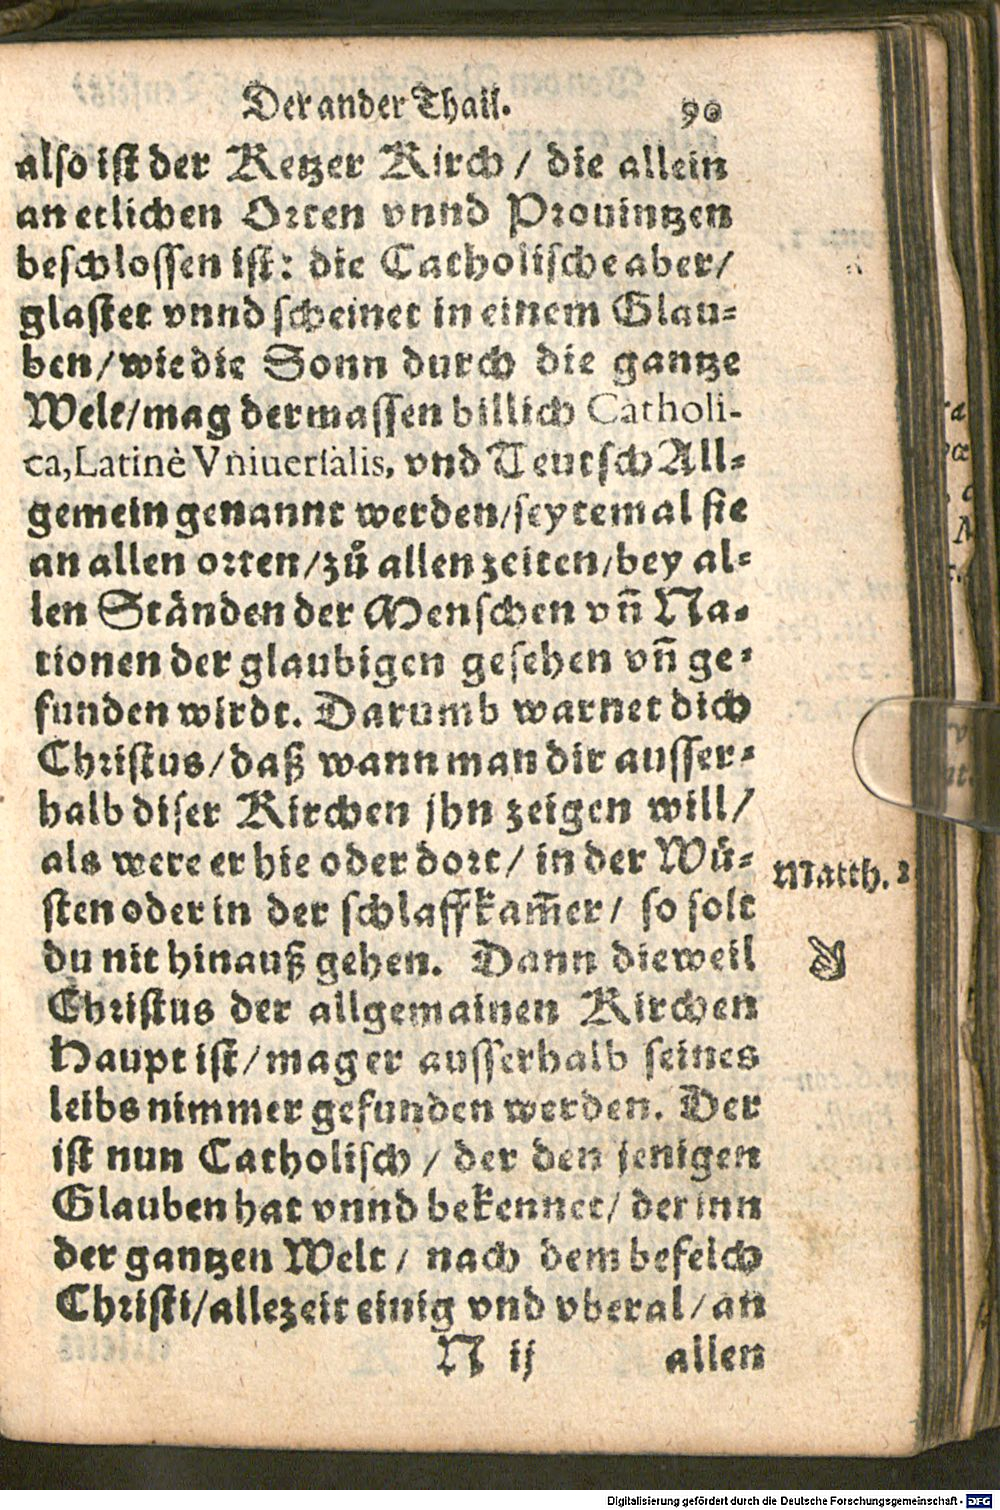 Der ander Thail. 90
also ist der Ketzer Kirch / die allein
an etlichen Orten vnnd Prouintzen
beschlossen ist: die Catholische aber/
glastet vnnd scheinet in einem Glau-
ben/wie die Sonn durch die gantze
Welt/mag dermassen billich Catholi-
ca, Latinè Vniuersàlis, vnd Teutsch All-
gemein genannt werden/seytemal sie
an allen orten/zů allen zeiten/bey al-
len Ständen der Menschen vñ Na-
tionen der glaubigen gesehen vñ ge-
funden wirdt. Darumb warnet dich
Christus/daß wann man dir ausser-
halb diser Kirchen jhn zeigen will/
als were er hie oder dort/ in der Wü-
sten oder in der schlaffkam̃er/ so solt
du nit hinauß gehen. Dann dieweil
Christus der allgemainen Kirchen
Haupt ist/mag er ausserhalb seines
leibs nimmer gefunden werden. Der
ist nun Catholisch / der den jenigen
Glauben hat vnnd bekennet/ der inn
der gantzen Welt / nach dem befelch
Christi/allezeit einig vnd vberal/an
N ij allen
Matth. 2
☞
Digitalisierung gefördert durch die Deutsche Forschungsgemeinschaft - DFG